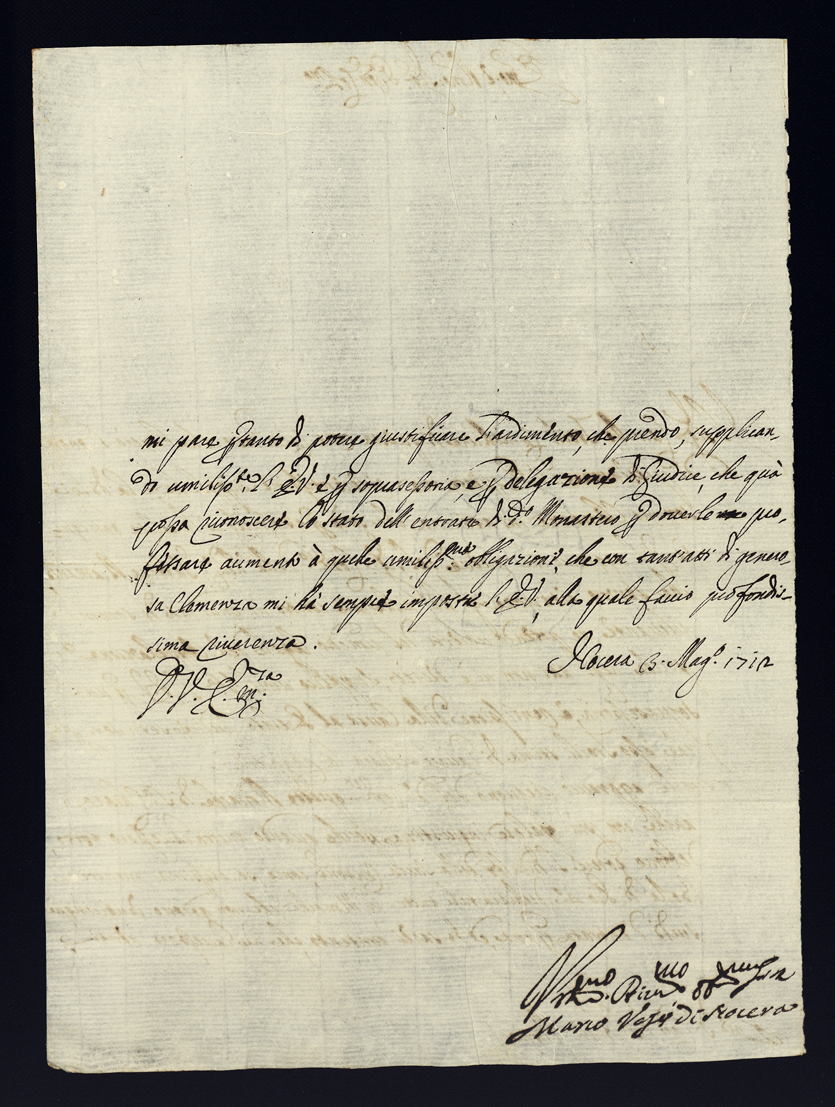 mi pare p tanto di potere giustificare l'ardimento, che prendo, supplican-
do umiliss.te l'E.V. e p soprasessoria e p delegazione di Giudice, che quà
possa riconoscere lo stato dell'entrate di d.o Monastero p doverle pro-
fessare aumento à quelle umiliss.me obligazioni, che con tant'atti di genero-
sa Clemenza mi hà sempre imposte l'E.V., alla quale faccio profondis-
sima riverenza.
Nocera 3. Mag.o 1712
D. V. Em.za
Um.mo Div.mo
Mario Vesc. di Nocera